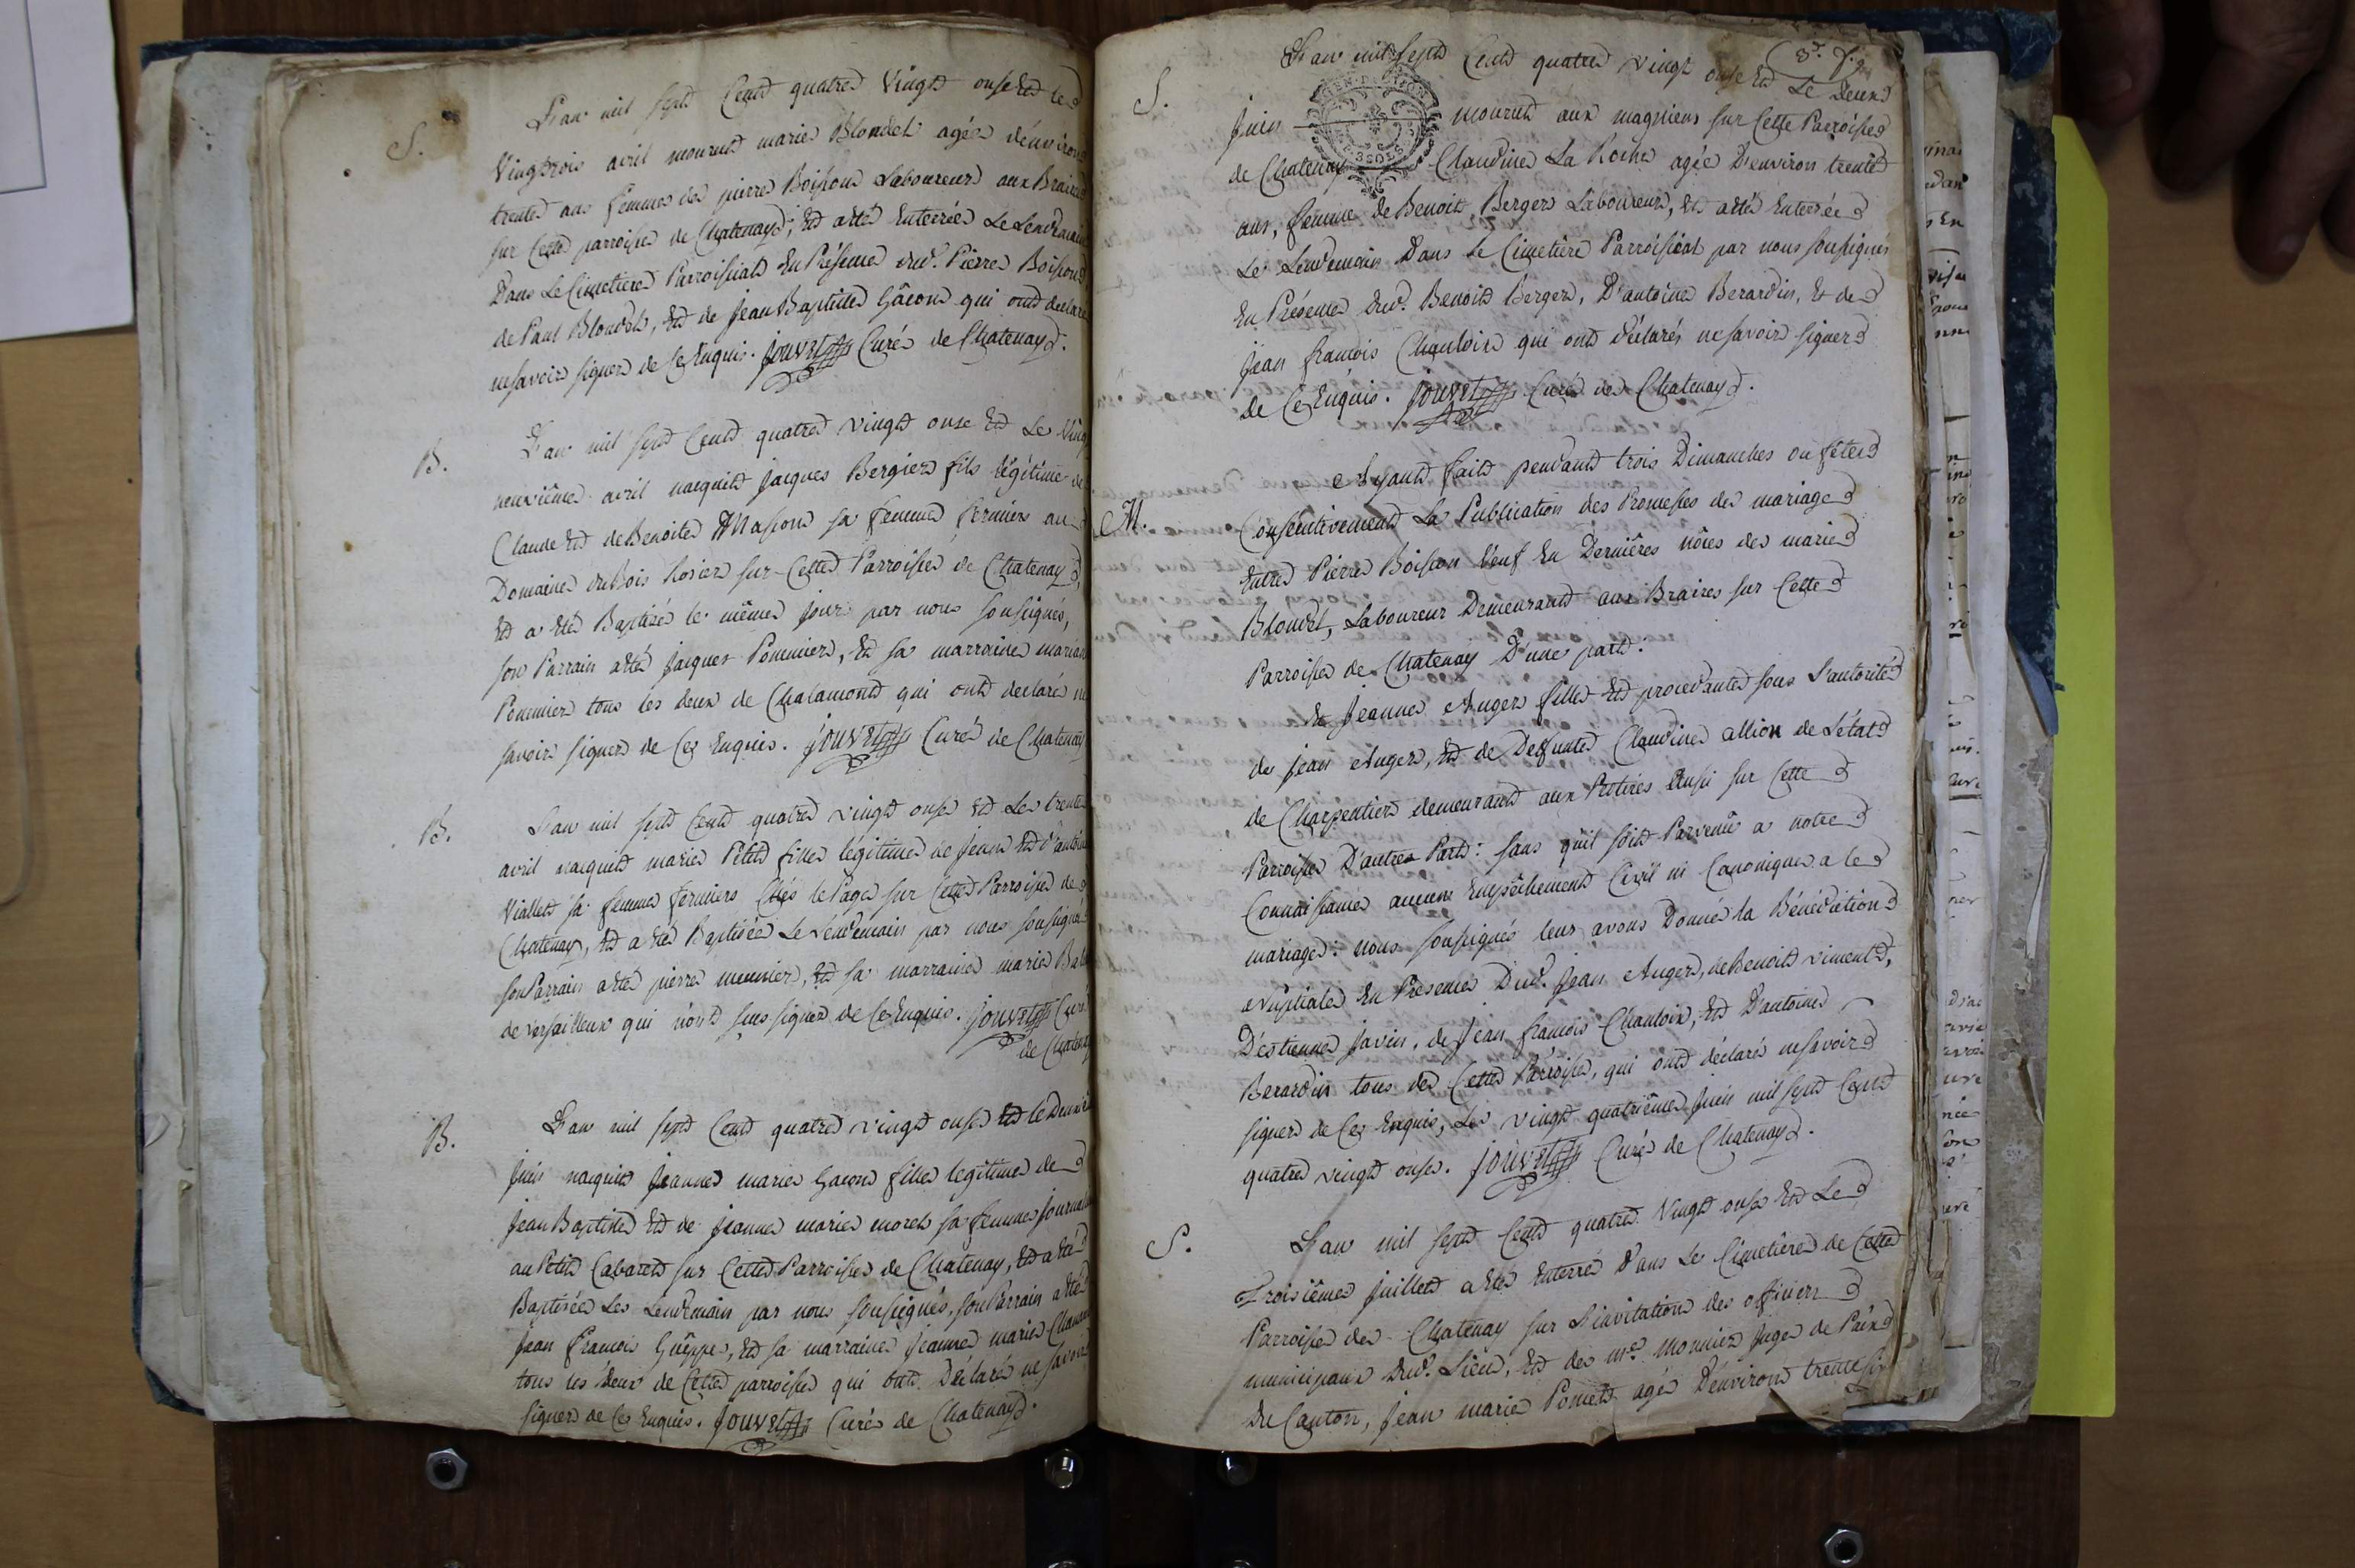 S.
L'an mil sept Cent quatre Vingt onse Et le
Vingtrois avril mourut marie Blondel agée d'environ
trente ans femme de pierre Boisson Laboureur aux Braires
sur Cette parroisse de Chatenay; Et a eté Enterrée Le Lendemain
Dans Le Cimetiere Parroissial En Présence dud. Pierre Boisson
de Paul Blondel, Et de Jean Baptiste Gâcon qui ont declaré
ne savoir signer de Ce Enquis. Jouvet Curé de Chatenay.
B.
L'an mil sept Cent quatre vingt onse Et Le Ving
neuvième avril nacquit Jacques Bergier fils légitime de
Claude Et de Benoite Masson sa femme fermiers au
Domaine du Bois Rosier sur Cette Parroisse de Chatenay,
Et a eté Baptisé le même jour par nous soussigné,
son Parrain a eté Jacques Pommier, Et sa marraine marian
Pommier tous les deux de Chalamont qui ont declaré ne
savoir signer de Ce Enquis. Jouvet Curé de Chatenay
B.
L'an mil sept Cent quatre vingt onse Et Le trente
avril nacquit marie Petit fille legitime de Jean Et d'antoin
Viallet sa femme fermiers Chés le Page sur Cette Parroisse de
Chatenay, Et a eté Baptisée Le Lendemain par nous soussigné
son Parrain a eté pierre meunier, Et sa marraine marie Bal
de versailleux qui n'ont sus signer de Ce Enquis. Jouvet Curé
de Chatenay
B.
L'an mil sept Cent quatre vingt onse Et le Deuxiè
juin nacquit Jeanne marie Gacon fille legitime de
Jean Baptiste Et de Jeanne marie morel sa femme journal
au Petit Cabaret sur Cette Parroisse de Chatenay, Et a eté
Baptisée Le Lendemain par nous soussigné, son Parrain a eté
Jean François Guêppe, Et sa marraine Jeanne marie
tous les deux de Cette parroisse qui ont Déclaré ne savoir
signer de Ce Enquis. Jouvet Curé de Chatenay.
S.
L'an mil sept Cent quatre vingt onse Et Le Deux
Juin mourut aux magniens sur Cette Parroisse
de Chatenay Claudine La Roche agée D'environ trente
ans, femme de Benoit Berger Laboureur, Et a eté Enterrée
Le Lendemain Dans le Cimetière Parroissial par nous soussigné
En Présence dud. Benoit Berger, D'antoine Berardin, Et de
Jean françois Chauloin qui ont déclaré ne savoir signer
de Ce Enquis. Jouvet Curé de Chatenay.
M.
Ayant fait pendant trois Dimanches ou fêtes
Consecutivement La Publication des Promesses de mariage
Entre Pierre Boisson Veuf En Dernières nôces de marie
Blondel, Laboureur Demeurant aux Braires sur Cette
Parroisse de Chatenay D'une part:
Et Jeanne Auger fille Et procedante sous L'autorité
de Jean Auger, Et de Defunte Claudine allion de L'état
de Charpentier demeurant aux Protires aussi sur Cette
Parroisse D'autre Part: sans qu'il soit Parvenû a notre
Connoissance aucun Empêchement Civil ni Canonique a le
mariage: nous soussigné leur avons Donné la Bénédiction
Nuptiale En Présence Dud. Jean Auger, de Benoit viment,
D'estienne Javin, de Jean françois Chauloin, Et D'antoine
Berardin tous de Cette Parroisse, qui ont déclaré ne savoir
signer de Ce Enquis, Le vingt quatrième Juin mil sept Cent
quatre vingt onse. Jouvet Curé de Chatenay.
S.
L'an mil sept Cent quatre Vingt onse Et Le
Troisième juillet a eté Enterré Dans Le Cimetière de Cette
Parroisse de Chatenay sur L'invitation des officiers
municipaux Dud. Lieu, Et de mr. Monnier Juge de Paix
Du Canton, Jean marie Pomet agé D'environ trente six